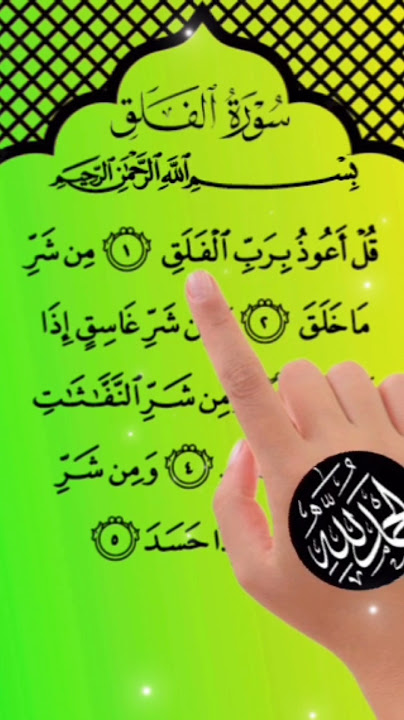 سُوْرَةُ ٱلْفَلَقِ
بِسْمِ ٱللَّهِ ٱلرَّحْمَٰنِ ٱلرَّحِيمِ
قُلْ أَعُوذُ بِرَبِّ ٱلْفَلَقِ ١ مِن شَرِّ
مَا خَلَقَ ٢ شَرِّ غَاسِقٍ إِذَا
وَمِن شَرِّ ٱلنَّفَّٰثَٰتِ
٤ وَمِن شَرِّ
حَسَدَ ٥
الحمد لله